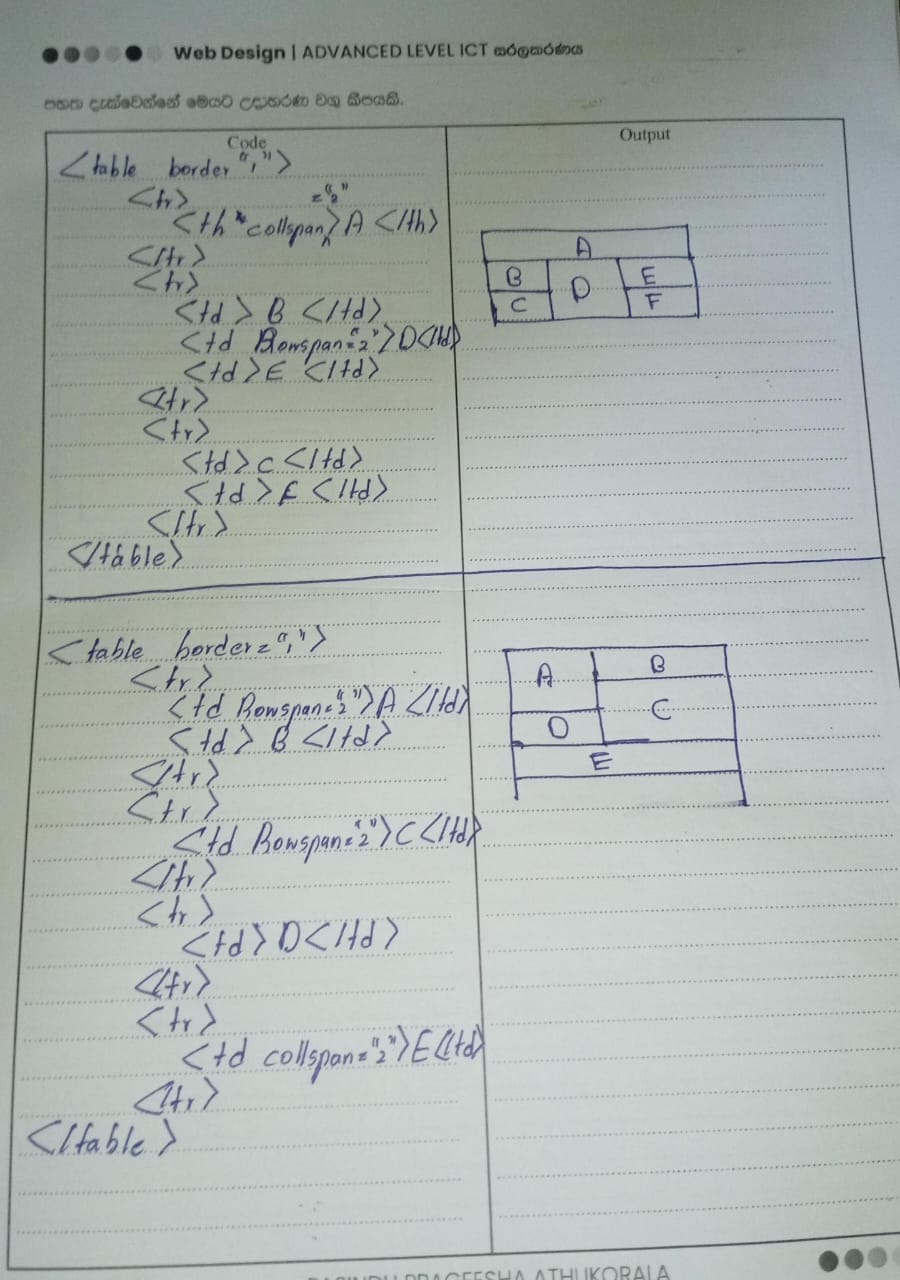 Web Design | ADVANCED LEVEL ICT සරලකරණය
පහත දැක්වෙන්නේ මෙයට උදාහරණ වන කිපයකි.
Code
Output
<table border "1">
<tr>
="2"
<th collspan> A </th>
</tr>
<tr>
<td> B </td>
<td Rowspan="2">D</td>
<td>E </td>
</tr>
<tr>
<td>C </td>
<td>E </td>
</tr>
</table>
A
B
D
E
C
F
<table border="1">
<tr>
<td Rowspan="2">A </td>
<td> B </td>
</tr>
<tr>
<td Rowspan="2">C</td>
</tr>
<tr>
<td>D</td>
</tr>
<tr>
<td collspan="2">E</td>
</tr>
</table>
A
B
C
D
E
PRAGEESHA ATHUKORALA